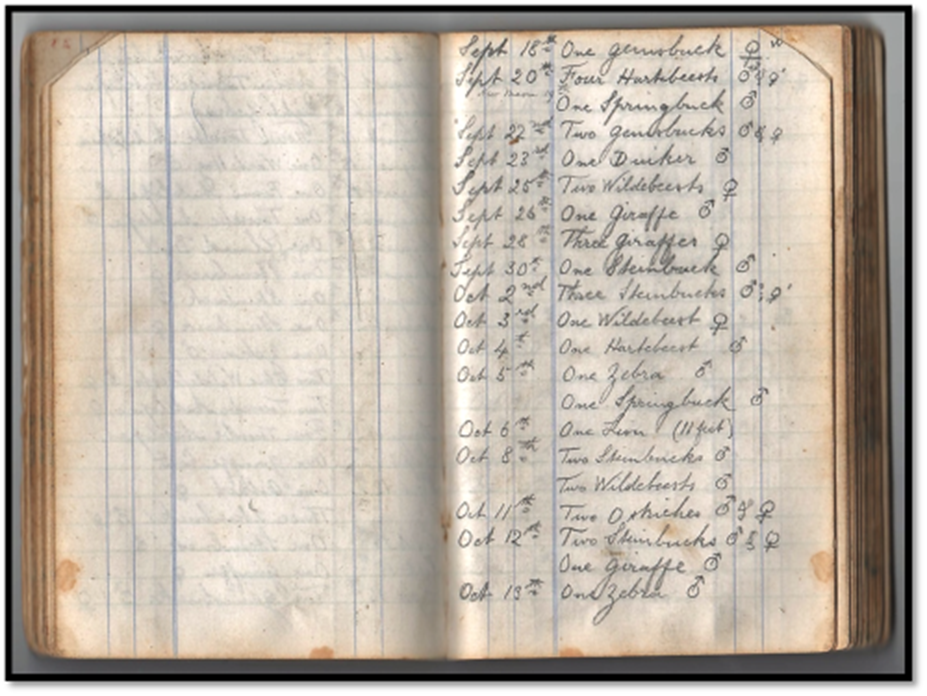 Sept 18th One gemsbuck ♀
Sept 20th Four Hartebeests ♂ & ♀
One Springbuck ♂
Sept 22nd Two gemsbucks ♂ & ♀
Sept 23rd One Duiker ♂
Sept 25th Two Wildebeests ♀
Sept 26th One Giraffe ♂
Sept 28th Three giraffes ♀
Sept 30th One Steinbuck ♂
Oct 2nd Three Steinbucks ♂ & ♀
Oct 3rd One Wildebeest ♀
Oct 4th One Hartebeest ♂
Oct 5th One Zebra ♂
One Springbuck ♂
Oct 6th One Lion (11 feet)
Oct 8th Two Steinbucks ♂
Two Wildebeests ♂
Oct 11th Two Ostriches ♂ & ♀
Oct 12th Two Steinbucks ♂ & ♀
One Giraffe ♂
Oct 13th One Zebra ♂